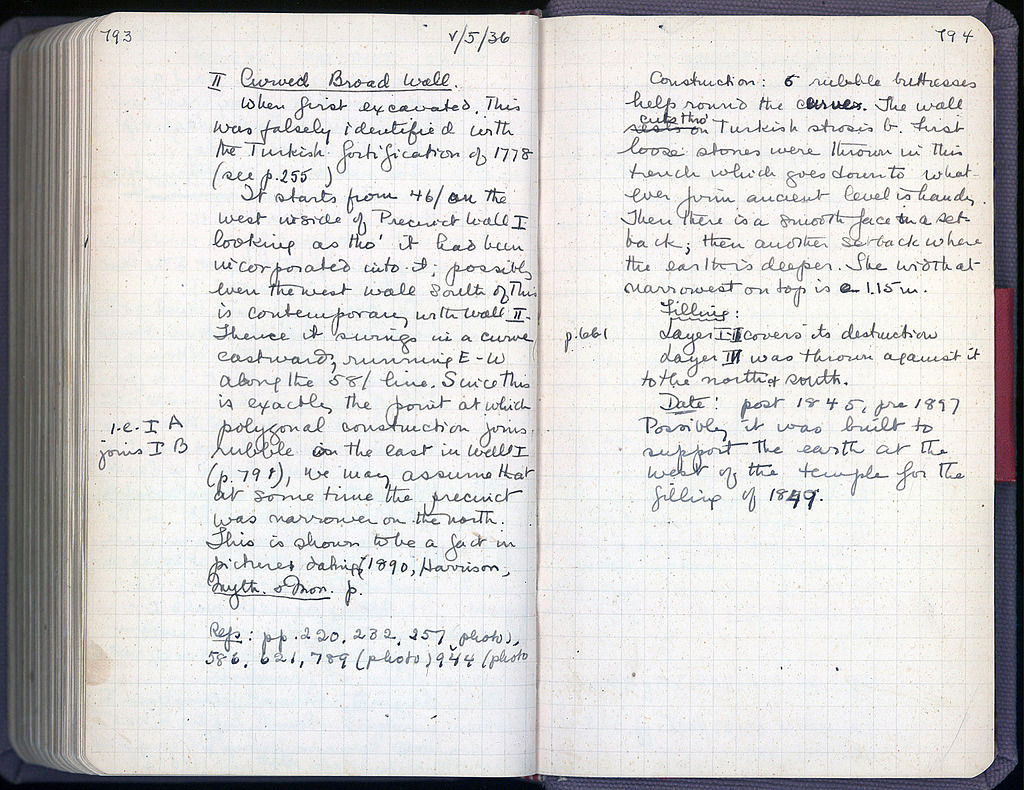 793
V/5/36
II Curved Broad Wall.
When first excavated. This
was falsely identified with
the Turkish fortification of 1778
(see p.255)
It starts from 46/ on the
west inside of Precinct Wall I
looking as tho' it had been
incorporated into it; possibly
even the west wall south of this
is contemporary with wall II.
Thence it swings in a curve
eastward, running E-W
along the 58/ line. Since this
is exactly the point at which
i.e. I A
joins I B
polygonal construction joins
rubble on the east in Wall I
(p. 791), we may assume that
at some time the precinct
was narrower on the north.
This is shown to be a fact in
pictures dating 1890, Harrison,
Myth. & Mon. p.
Refs: pp. 220, 232, 257 photo),
586, 621, 789 (photo) 944 (photo
794
Construction: 5 rubble buttresses
help round the curves. The wall
cuts thro'
rests on Turkish strosis b. First
loose stones were thrown in this
trench which goes down to what-
ever firm ancient level is handy.
Then there is a smooth face to a set-
back; then another setback where
the earth is deeper. The width at
narrowest on top is 1.15 m.
Filling:
p.661
Layer I-II covers its destruction
Layer III was thrown against it
to the north & south.
Date: post 1845, pre 1897
Possibly it was built to
support the earth at the
west of the temple for the
filling of 1849.